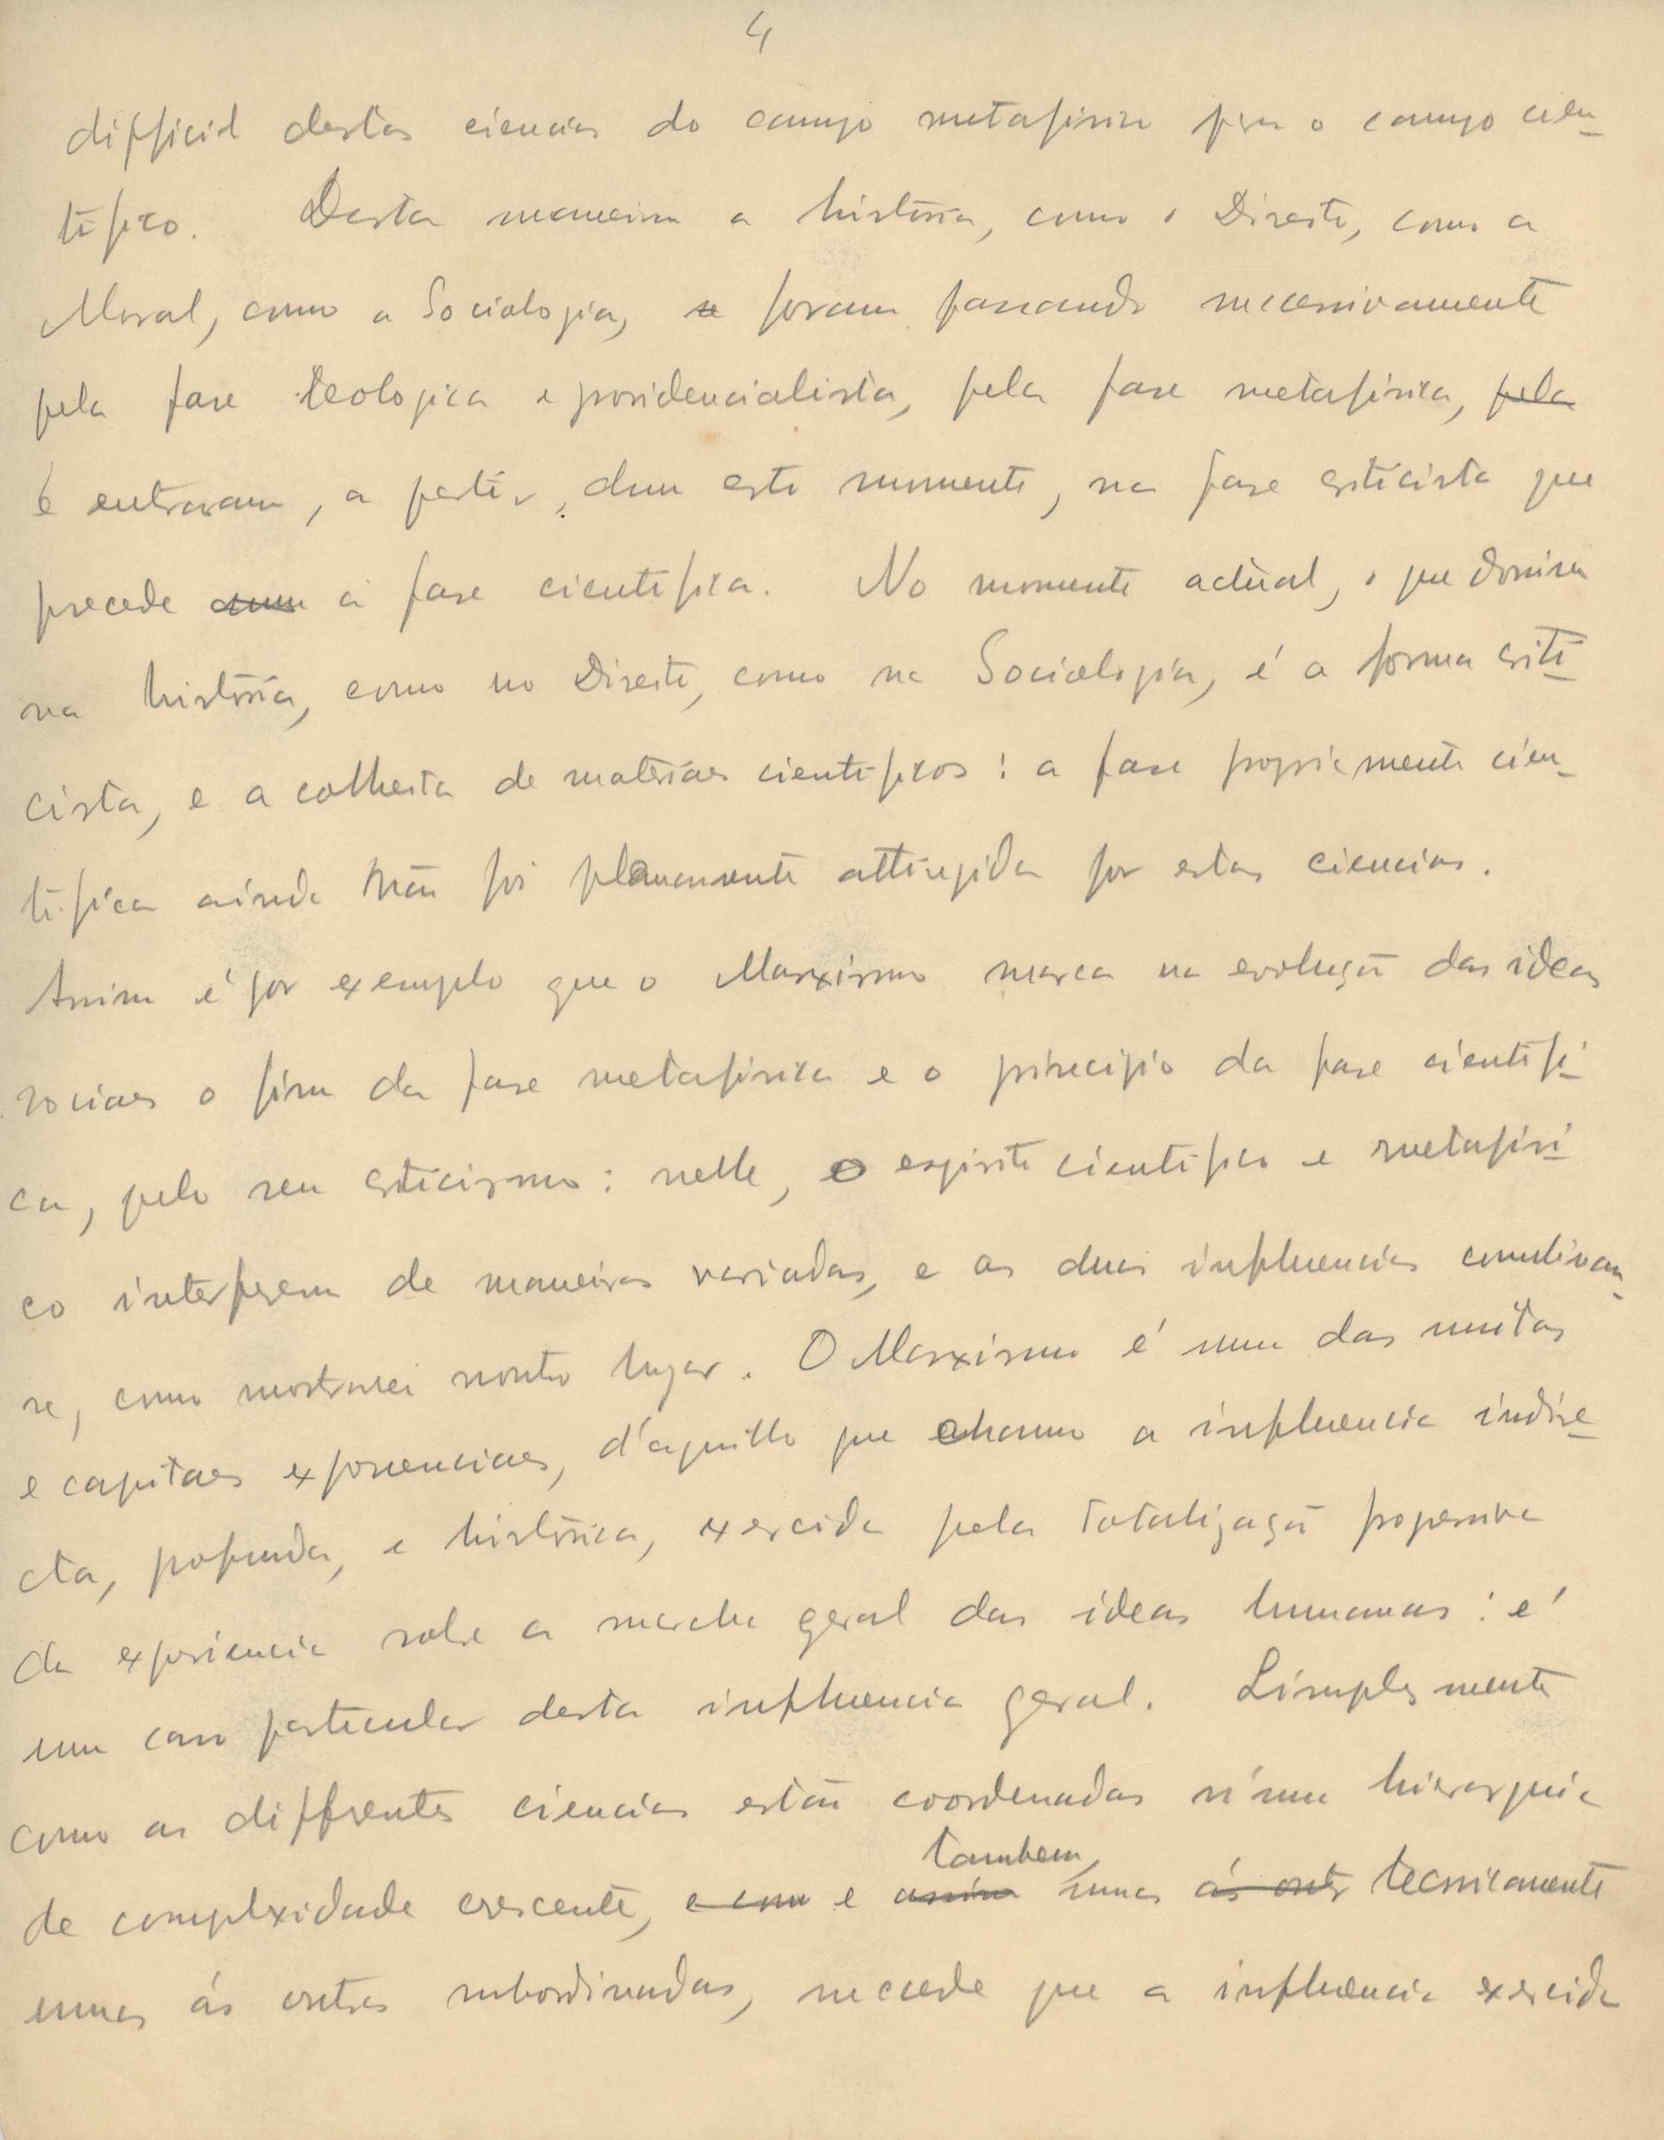 4
difficil destas ciencias do campo metafisico para o campo cien-
tifico. Desta maneira a história, como o Direito, como a
Moral, como a Sociologia, se foram passando sucessivamente
pela fase teologica e providencialista, pela fase metafisica, pela
e entraram, a partir, dum certo momento, na fase criticista que
precede a fase cientifica. No momento actual, o que domina
na história, como no Direito, como na Sociologia, é a forma criti-
cista, e a colheita de materiaes cientificos: a fase propriamente cien-
tifica ainda não foi planamente attingida por estas ciencias.
Assim é por exemplo que o Marxismo marca na evolução das ideas
sociaes o fim da fase metafisica e o principio da fase cientifi-
ca, pelo seu criticismo: nelle, o espirito cientifico e metafisi-
co interferem de maneiras variadas, e as duas influencias
se, como mostrarei noutro lugar. O Marxismo é um das muitas
e capitaes exponenciaes, d'aquillo que chamo a influencia indire-
cta, profunda, e histórica, exercida pela totalização progressiva
da experiencia sobre a marcha geral das ideas humanas: é
um caso particular desta influencia geral. Simplesmente
como as diffrentes ciencias estão coordenadas n'uma hierarquia
tambem
de complexidade crescente, e com e assim umas ás outr tecnicamente
umas ás outras subordinadas, sucede que a influencia exercida